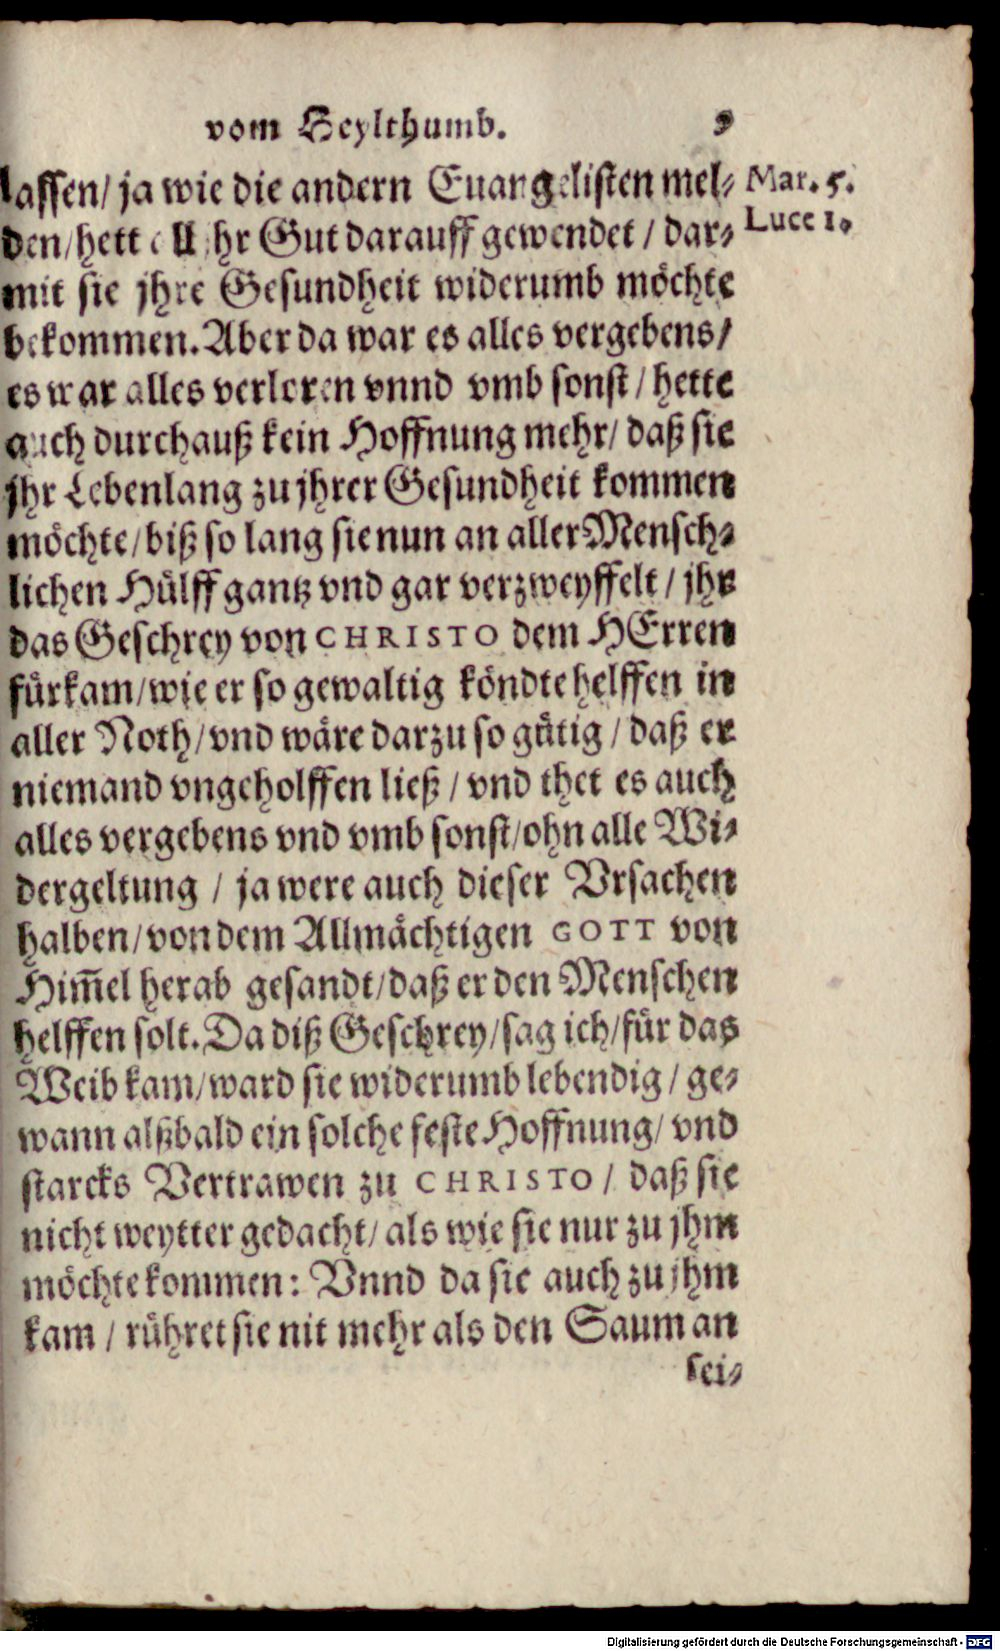 vom Heylthumb. 9
lassen/ ja wie die andern Euangelisten mel⸗ Mar. 5.
den/hett all jhr Gut darauff gewendet / dar⸗ Luce 1.
mit sie jhre Gesundheit widerumb möchte
bekommen. Aber da war es alles vergebens/
es war alles verloren vnnd vmb sonst / hette
auch durchauß kein Hoffnung mehr/ daß sie
jhr Lebenlang zu jhrer Gesundheit kommen
möchte/biß so lang sie nun an aller Mensch⸗
lichen Hülff gantz vnd gar verzweyffelt / jhr
das Geschrey von CHRISTO dem HErren
fürkam/wie er so gewaltig köndte helffen in
aller Noth/vnd wäre darzu so gütig / daß er
niemand vngeholffen ließ / vnd thet es auch
alles vergebens vnd vmb sonst/ohn alle Wi⸗
dergeltung / ja were auch dieser Vrsachen
halben/von dem Allmächtigen GOTT von
Him̄el herab gesandt/daß er den Menschen
helffen solt. Da diß Geschrey/sag ich/für das
Weib kam/ward sie widerumb lebendig / ge⸗
wann alßbald ein solche feste Hoffnung/ vnd
starcks Vertrawen zu CHRISTO / daß sie
nicht weytter gedacht/ als wie sie nur zu jhm
möchte kommen: Vnnd da sie auch zu jhm
kam / rühret sie nit mehr als den Saum an
sei⸗
Digitalisierung gefördert durch die Deutsche Forschungsgemeinschaft - DFG